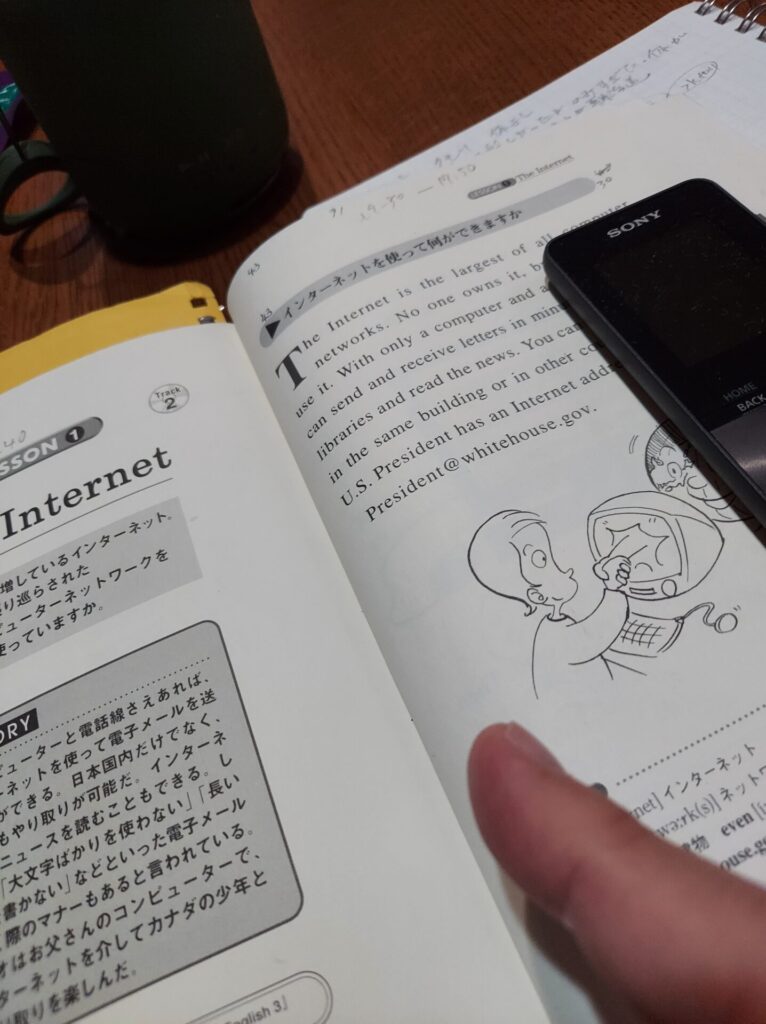 Track
2
SSON 1
Internet
増しているインターネット。
り巡らされた
ピューターネットワークを
使っていますか。
ORY
ピューターと電話線さえあれば、
ネットを使って電子メールを送
ができる。日本国内だけでなく、
もやり取りが可能だ。インターネ
ニュースを読むこともできる。し
「大文字ばかりを使わない」「長い
書かない」などといった電子メール
際のマナーもあると言われている。
オはお父さんのコンピューターで、
ターネットを介してカナダの少年と
り取りを楽しんだ。
English 3』
LESSON 1 The Internet
19:30
30
43
43
インターネットを使って何ができますか
The Internet is the largest of all computer
networks. No one owns it, b
use it. With only a computer and a
can send and receive letters in minu
libraries and read the news. You can
in the same building or in other co
U.S. President has an Internet addre
President@whitehouse.gov.
SONY
HOME
BACK
net] インターネット
wəːrk(s)] ネットワ
物 even
ouse.go